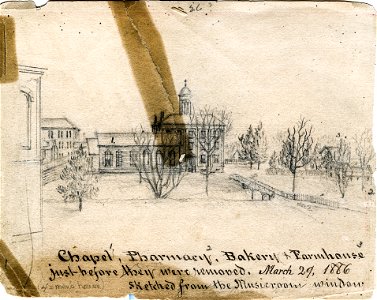 Chapel¹, Pharmacy², Bakery³ & Farmhouse⁴
just before they were removed. March 29, 1886
Sketched from the Musicroom window